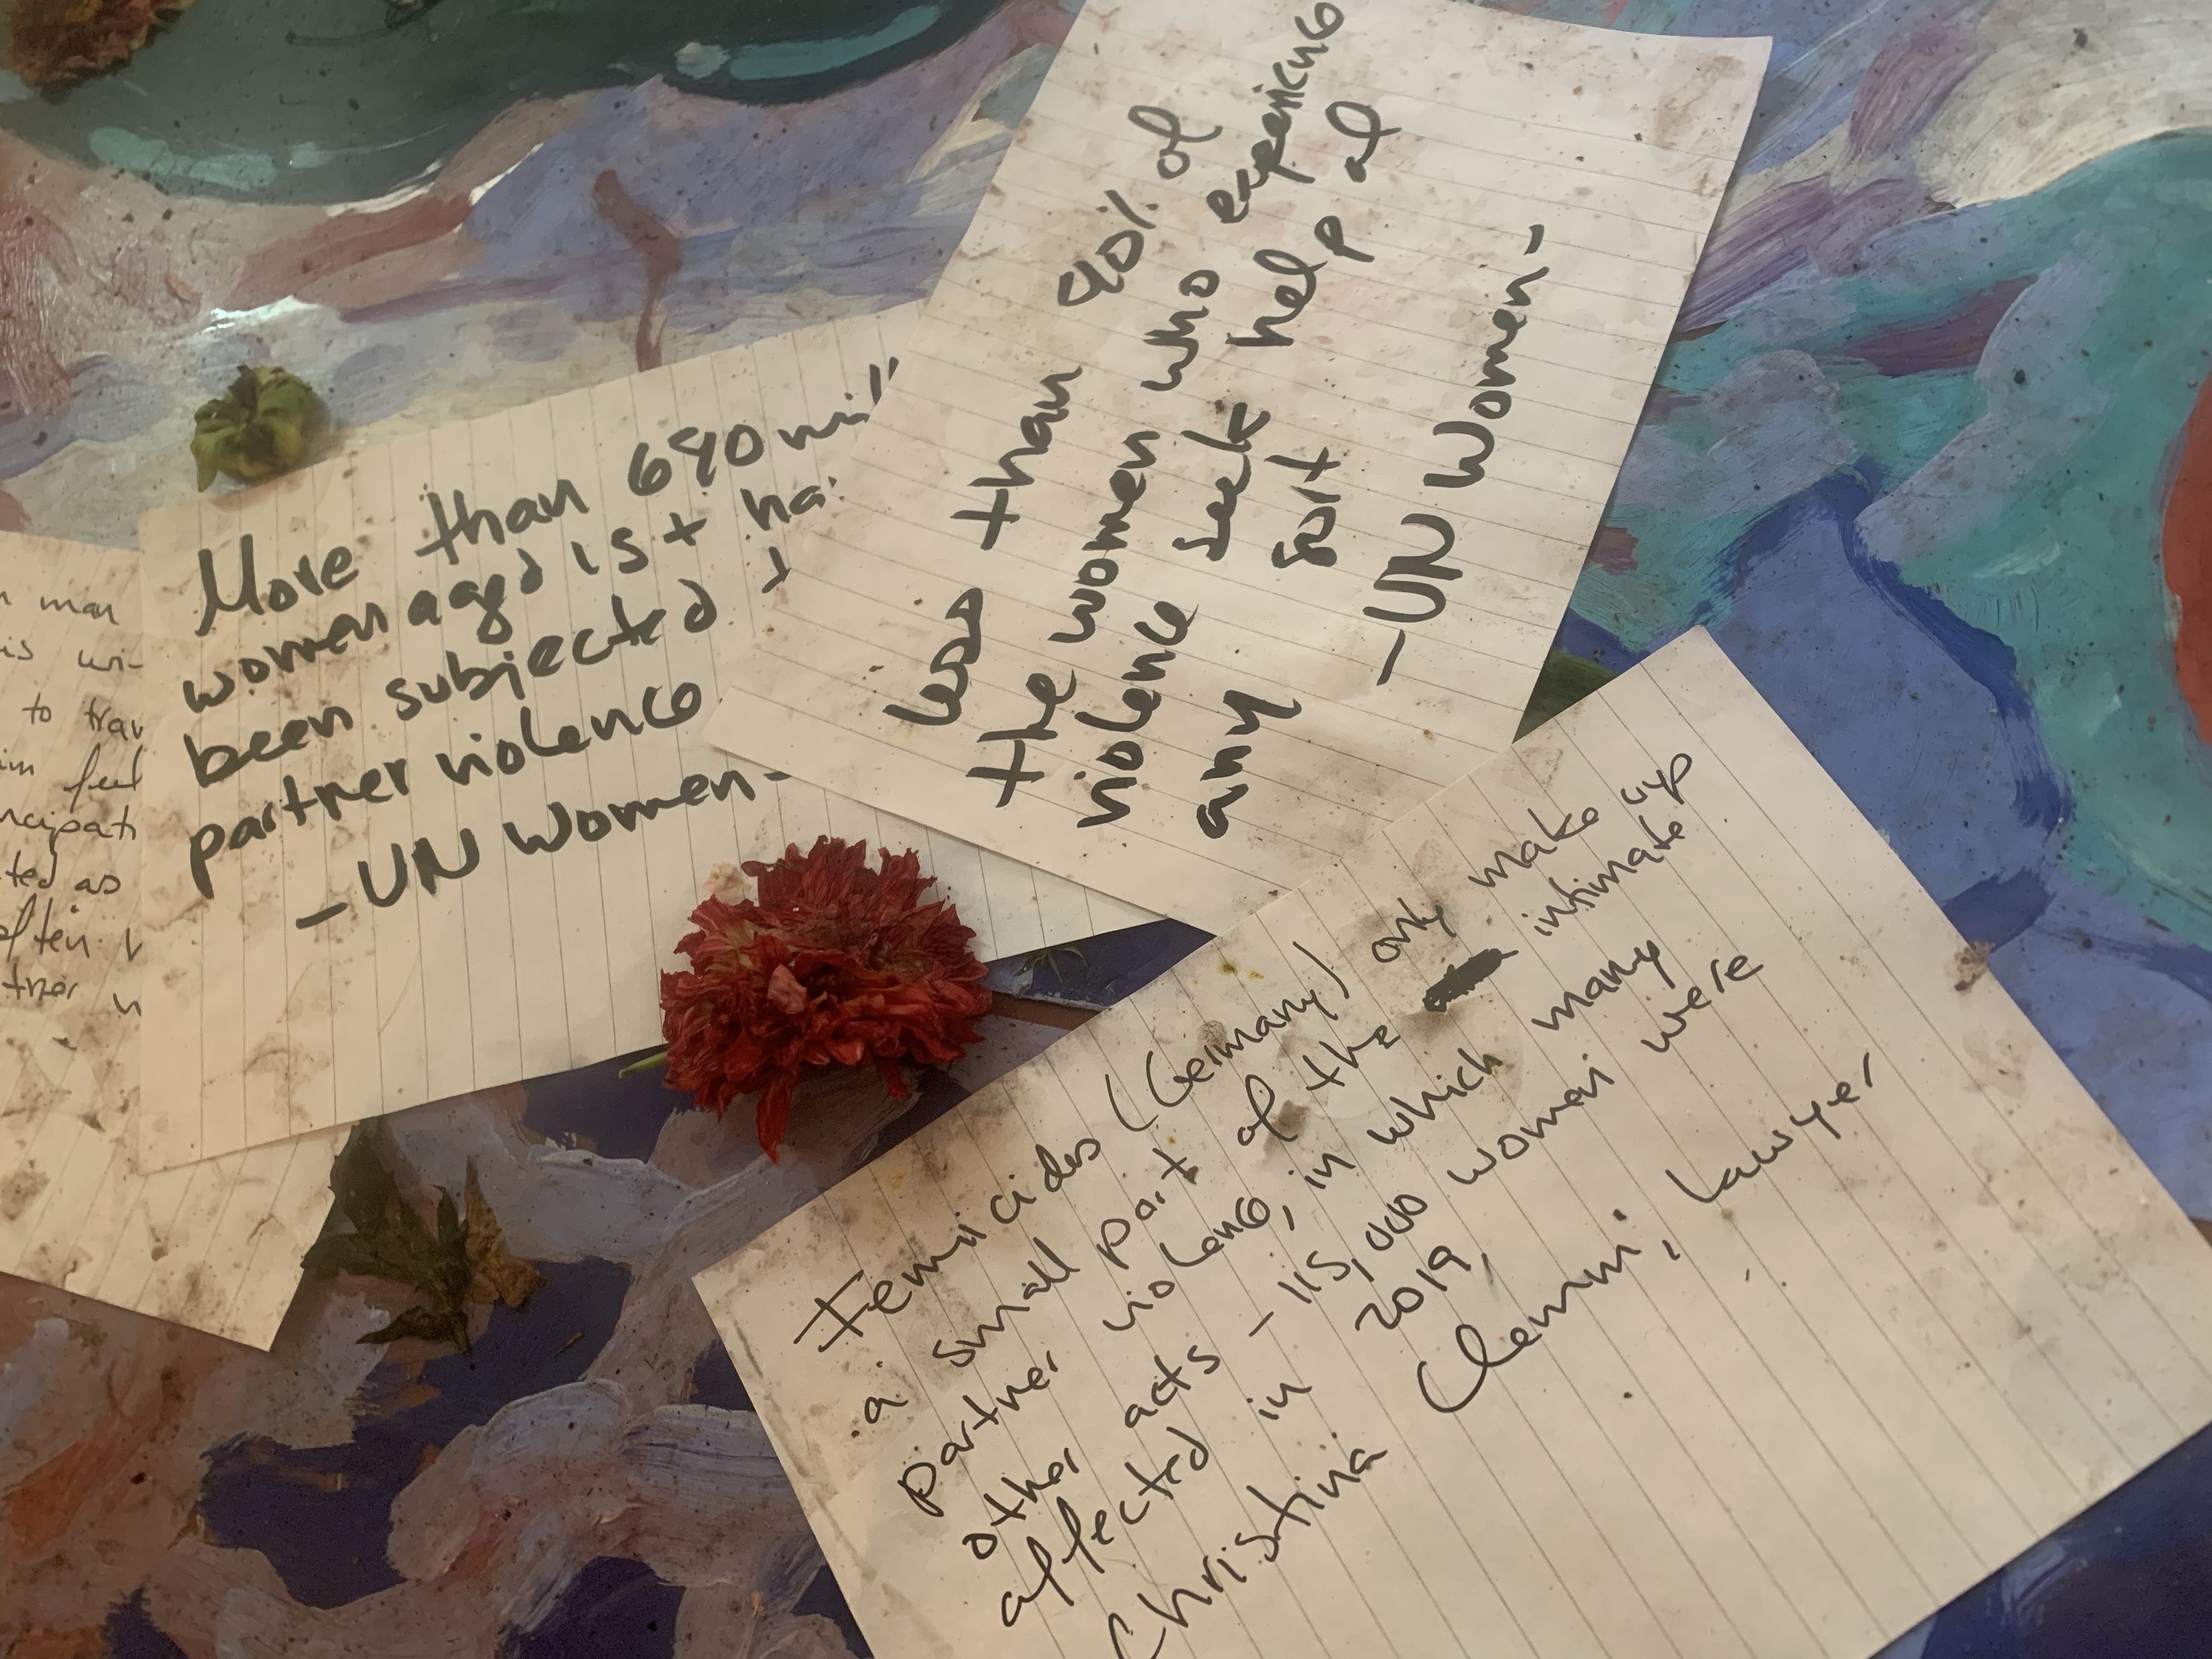 man
to
feel
ted as
often
More than 640 mil
women aged 15+ ha
been subjected t
partner violence
- UN Women -
Less than 40% of
the women who experience
violence seek help of
any sort
- UN Women -
Femicides (Germany) only make up
a small part of the intimate
partner violence, in which many
other acts - 115,000 woman were
affected in 2019,
Christina Clemm, Lawyer